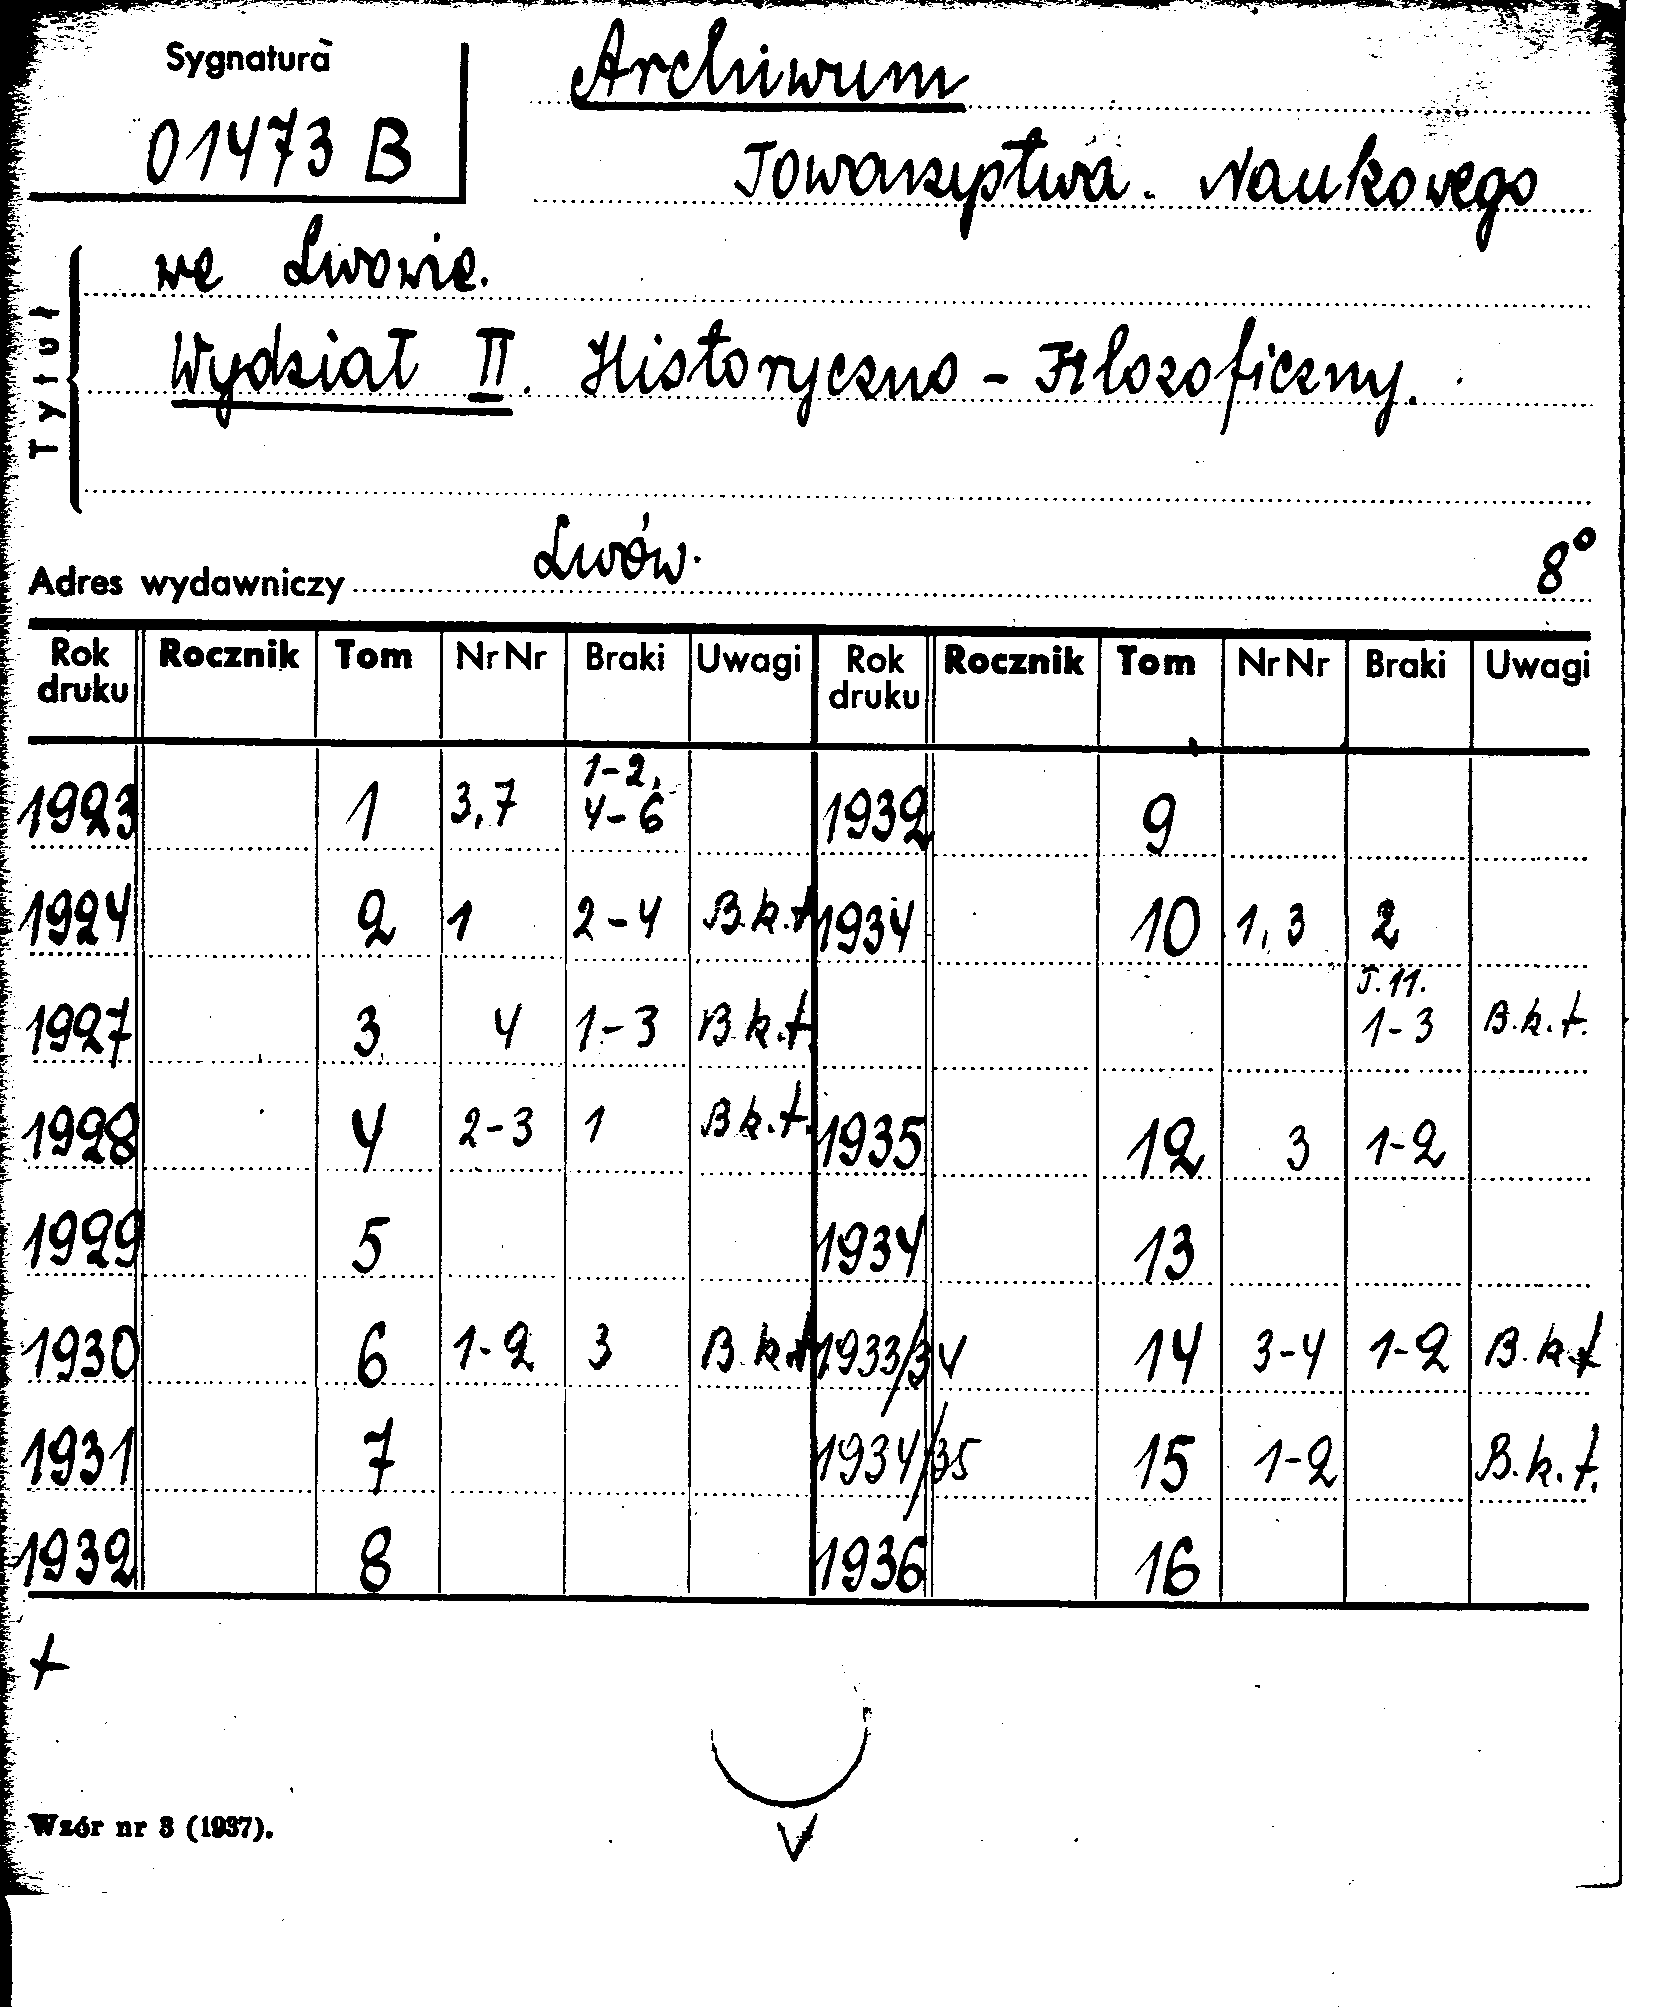 Sygnatura
01473 B
Archiwum
Towarzystwa. Naukowego
we Lwowie.
Wydział II. Historyczno-Filozoficzny.
Tytuł
Adres wydawniczy Lwów. 8°
Rok druku Rocznik Tom Nr Nr Braki Uwagi Rok druku Rocznik Tom Nr Nr Braki Uwagi
1923 1 3,7 1-2, 4-6 1932 9
1924 2 1 2-4 B.k.t 1934 10 1,3 2
1927 3 4 1-3 B.k.t. T.11. 1-3 B.k.t.
1928 4 2-3 1 B.k.t. 1935 12 3 1-2
1929 5 1934 13
1930 6 1-2 3 B.k.t 1933/34 14 3-4 1-2 B.k.t
1931 7 1934/35 15 1-2 B.k.t.
1932 8 1936 16
+
V
Wzór nr 3 (1937).